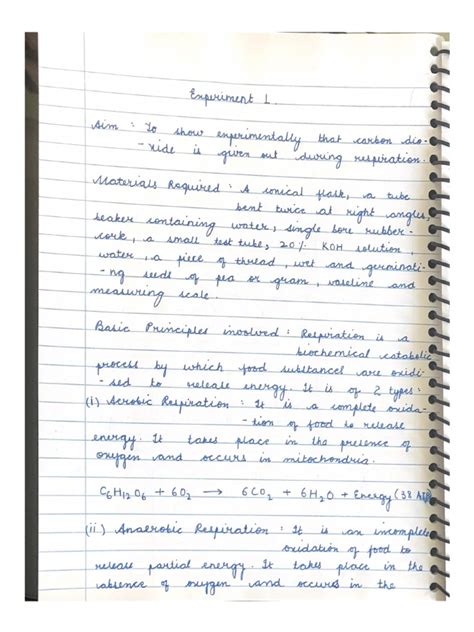 Experiment 1.
Aim : To show experimentally that carbon dio-
-xide is given out during respiration.
Materials Required : A conical flask, a tube
bent twice at right angles,
beaker containing water, single bore rubber-
cork, a small test tube, 20% KOH solution,
water, a piece of thread, wet and germinati-
-ng seeds of pea or gram, vaseline and
measuring scale.
Basic Principles involved : Respiration is a
biochemical catabolic
process by which food substances are oxidi-
-sed to release energy. It is of 2 types :
(i) Aerobic Respiration : It is a complete oxida-
-tion of food to release
energy. It takes place in the presence of
oxygen and occurs in mitochondria.
C6H12O6 + 6O2 → 6CO2 + 6H2O + Energy (38 ATP)
(ii) Anaerobic Respiration : It is an incomplete
oxidation of food to
release partial energy. It takes place in the
absence of oxygen and occurs in the